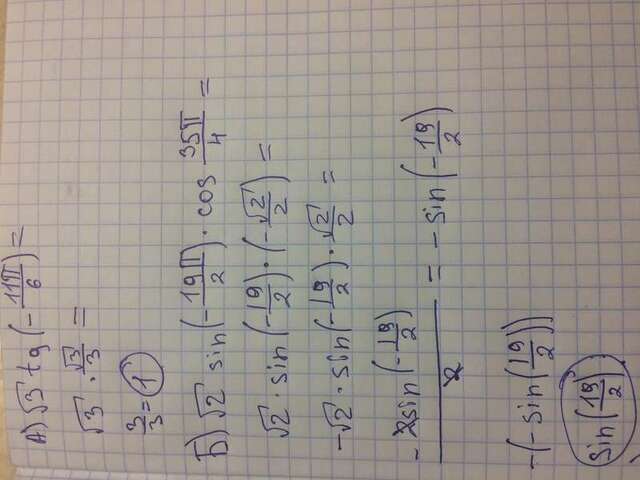 А) √3 tg (-11π/6) =
√3 · √3/3 =
3/3 = 1
Б) √2 sin(-19π/2) · cos 35π/4 =
√2 · sin(-19/2) · (-√2/2) =
-√2 · sin(-19/2) · √2/2 =
-2sin(-19/2)/2 = -sin(-19/2)
-(-sin(19/2))
sin(19/2)